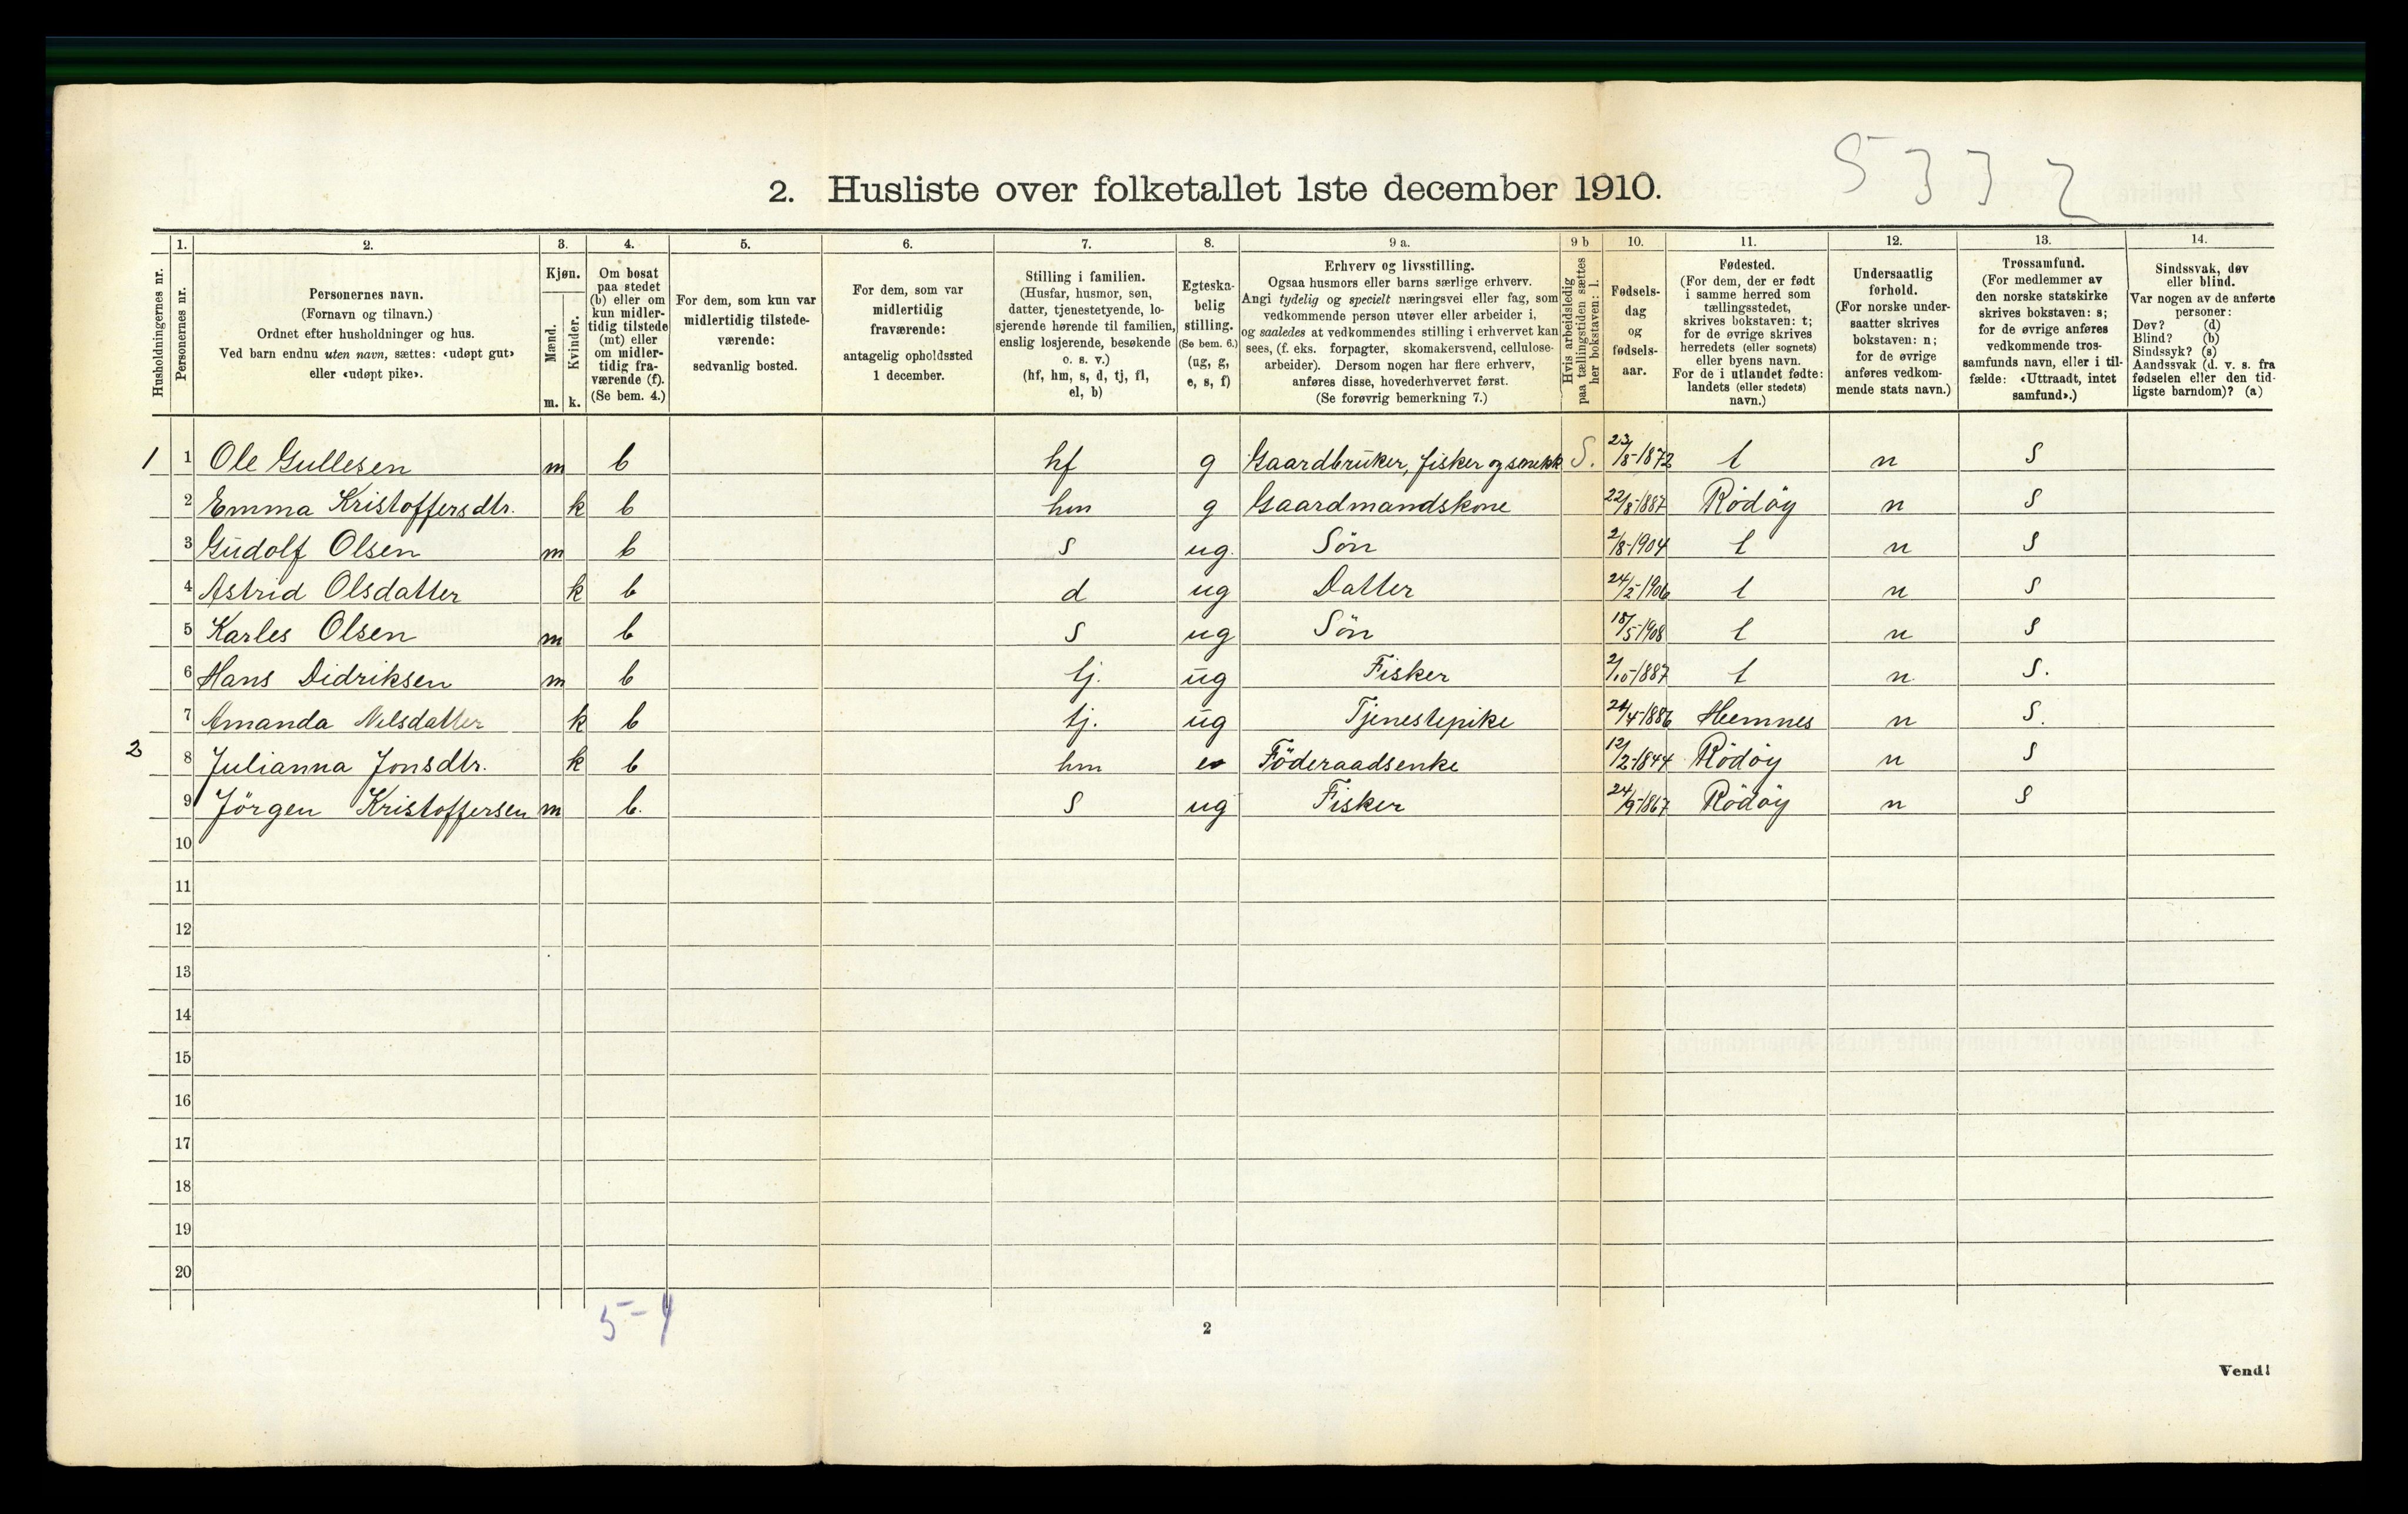 5332
2. Husliste over folketallet 1ste december 1910.
Husholdningernes nr.
1. Personernes nr.
2. Personernes navn.
(Fornavn og tilnavn.)
Ordnet efter husholdninger og hus.
Ved barn endnu uten navn, sættes: «udøpt gut»
eller «udøpt pike».
3. Kjøn.
Mænd. Kvinder.
m. k.
4. Om bosat
paa stedet
(b) eller om
kun midler-
tidig tilstede
(mt) eller
om midler-
tidig fra-
værende (f).
(Se bem. 4.)
5. For dem, som kun var
midlertidig tilstede-
værende:
sedvanlig bosted.
6. For dem, som var
midlertidig
fraværende:
antagelig opholdssted
1 december.
7. Stilling i familien.
(Husfar, husmor, søn,
datter, tjenestetyende, lo-
sjerende hørende til familien,
enslig losjerende, besøkende
o. s. v.)
(hf, hm, s, d, tj, fl,
el, b)
8. Egteska-
belig
stilling.
(Se bem. 6.)
(ug, g,
e, s, f)
9 a. Erhverv og livsstilling.
Ogsaa husmors eller barns særlige erhverv.
Angi tydelig og specielt næringsvei eller fag, som
vedkommende person utøver eller arbeider i,
og saaledes at vedkommendes stilling i erhvervet kan
sees, (f. eks. forpagter, skomakersvend, cellulose-
arbeider). Dersom nogen har flere erhverv,
anføres disse, hovederhvervet først.
(Se forøvrig bemerkning 7.)
9 b Hvis arbeidsledig
paa tællingstiden sættes
her bokstaven: l.
10. Fødsels-
dag
og
fødsels-
aar.
11. Fødested.
(For dem, der er født
i samme herred som
tællingsstedet,
skrives bokstaven: t;
for de øvrige skrives
herredets (eller sognets)
eller byens navn.
For de i utlandet fødte:
landets (eller stedets)
navn.)
12. Undersaatlig
forhold.
(For norske under-
saatter skrives
bokstaven: n;
for de øvrige
anføres vedkom-
mende stats navn.)
13. Trossamfund.
(For medlemmer av
den norske statskirke
skrives bokstaven: s;
for de øvrige anføres
vedkommende tros-
samfunds navn, eller i til-
fælde: «Uttraadt, intet
samfund».)
14. Sindssvak, døv
eller blind.
Var nogen av de anførte
personer:
Døv? (d)
Blind? (b)
Sindssyk? (s)
Aandssvak (d. v. s. fra
fødselen eller den tid-
ligste barndom)? (a)
1 1 Ole Gullesen m b hf g Gaardbruker, fisker og snekk S. t n S
2 Emma Kristoffersdtr. k b hm g Gaardmandskone 22/8-1887 Rödöy n S
3 Gudolf Olsen m b S ug. Sön 2/8-1904 t n S
4 Astrid Olsdatter k b d ug Datter 24/2-1906 t n S
5 Karles Olsen m b S ug Sön 18/5-1908 t n S
6 Hans Didriksen m b tj. ug Fisker 2/10-1887 t n S.
7 Amanda Nilsdatter k b tj. ug Tjenestepike Hemnes n S.
2 8 Julianna Jonsdtr. k b hm e Föderaadsenke 12/2-1844 Rödöy n S
9 Jörgen Kristoffersen m b. S ug Fisker 24/9-1867 Rödöy n S
10
11
12
13
14
15
16
17
18
19
20
5-4
2
Vend!